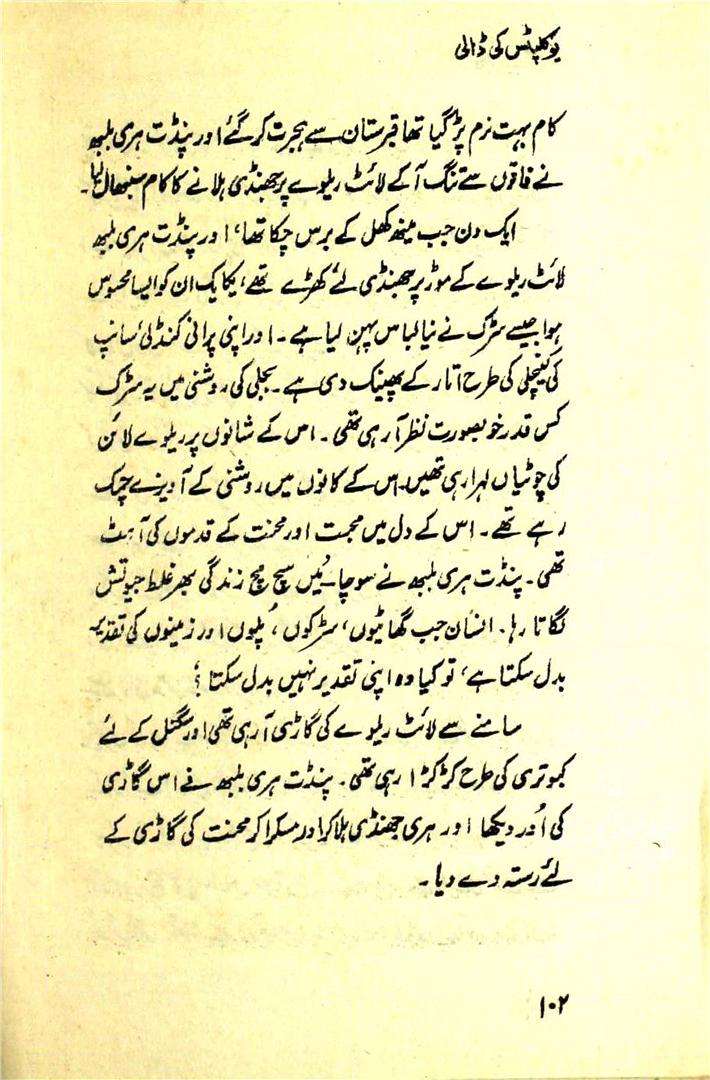 یوکلپٹس کی ڈالی
کام بہت نرم پڑ گیا تھا قبرستان سے ہجرت کر گئے اور پنڈت ہری بلبھ
نے فاقوں سے تنگ آ کے لائٹ ریلوے پر جھنڈی ہلانے کا کام سنبھال لیا۔
ایک دن جب مینھ کھل کے برس چکا تھا، اور پنڈت ہری بلبھ
لائٹ ریلوے کے موڑ پر جھنڈی لئے کھڑے تھے، یکایک ان کو ایسا محسوس
ہوا جیسے سڑک نے نیا لباس پہن لیا ہے۔ اور اپنی پرانی کنڈلی سانپ
کی کینچلی کی طرح اتار کے پھینک دی ہے۔ بجلی کی روشنی میں یہ سڑک
کس قدر خوبصورت نظر آ رہی تھی۔ اس کے شانوں پر ریلوے لائن
کی چوٹیاں لہرا رہی تھیں۔ اس کے کانوں میں روشنی کے آویزے چمک
رہے تھے۔ اس کے دل میں محبت اور محنت کے قدموں کی آہٹ
تھی۔ پنڈت ہری بلبھ نے سوچا۔ میں سچ مچ زندگی بھر غلط جیوتش
لگاتا رہا۔ انسان جب گھاٹیوں، سڑکوں، پلوں اور زمینوں کی تقدیر
بدل سکتا ہے، تو کیا وہ اپنی تقدیر نہیں بدل سکتا؟
سامنے سے لائٹ ریلوے کی گاڑی آ رہی تھی اور سگنل کے لئے
کبوتری کی طرح کڑکڑا رہی تھی۔ پنڈت ہری بلبھ نے اس گاڑی
کی اُور دیکھا اور ہری جھنڈی ہلا کر اور مسکرا کر محنت کی گاڑی کے
لئے رستہ دے دیا۔
۱۰۲